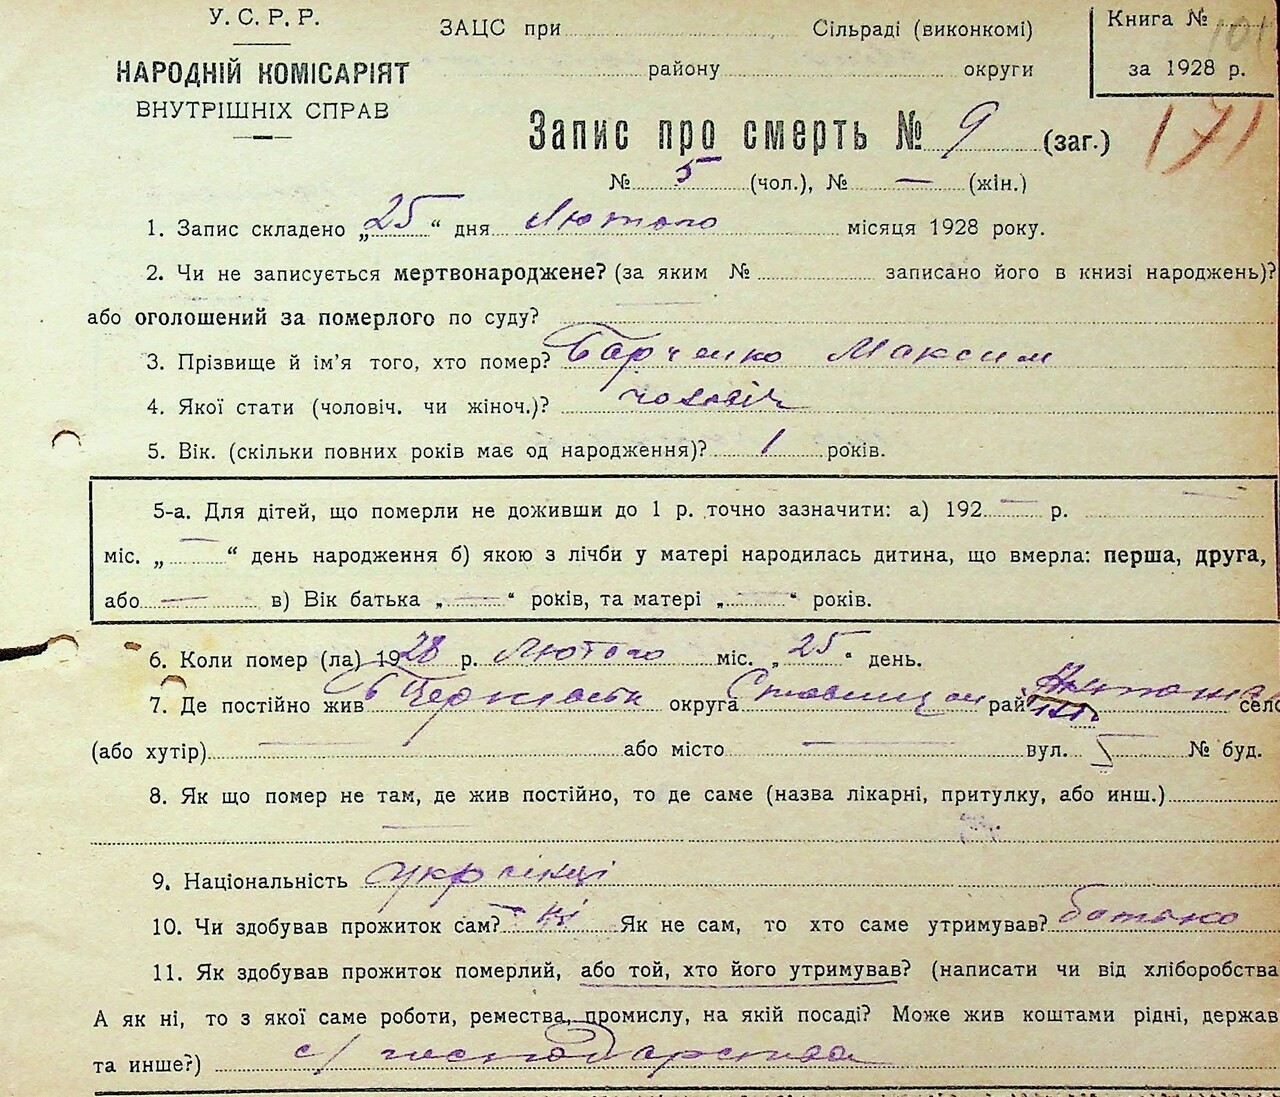 У. С. Р. Р.
НАРОДНІЙ КОМІСАРІЯТ
ВНУТРІШНІХ СПРАВ
ЗАЦС при Сільраді (виконкомі)
району округи
Книга № 101
за 1928 р.
171
Запис про смерть № 9 (заг.)
№ 5 (чол.), № — (жін.)
1. Запис складено „25“ дня Лютого місяця 1928 року.
2. Чи не записується мертвонароджене? (за яким № записано його в книзі народжень)?
або оголошений за померлого по суду? —
3. Прізвище й ім’я того, хто помер? Барченко Максим
4. Якої стати (чоловіч. чи жіноч.)? чоловіч
5. Вік. (скільки повних років має од народження)? 1 років.
5-а. Для дітей, що померли не доживши до 1 р. точно зазначити: а) 192 — р. —
міс. „—“ день народження б) якою з лічби у матері народилась дитина, що вмерла: перша, друга,
або — в) Вік батька „—“ років, та матері „—“ років.
6. Коли помер (ла) 1928 р. Лютого міс. „25“ день.
7. Де постійно жив округа рай село
(або хутір) — або місто — вул. № буд.
8. Як що помер не там, де жив постійно, то де саме (назва лікарні, притулку, або инш.)
—
9. Національність українці
10. Чи здобував прожиток сам? ні Як не сам, то хто саме утримував? батько
11. Як здобував прожиток померлий, або той, хто його утримував? (написати чи від хліборобства
А як ні, то з якої саме роботи, ремества, промислу, на якій посаді? Може жив коштами рідні, держав
та инше?) с/господарства